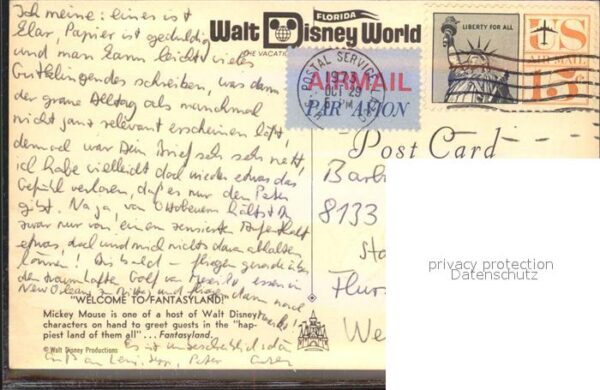 FLORIDA
Walt Disney World
Ich meine: eines ist
klar, Papier ist geduldig
und man kann leicht vieles
Gutklingendes schreiben, was dann
der graue Alltag als manchmal
nicht ganz relevant erscheinen läßt,
dennoch war Dein Brief sehr sehr nett,
ich habe vielleicht doch wieder etwas das
Gefühl verloren, daß es nur den Peter
gibt. Na ja, von
zwar nur von einem
etwas, doch und mich nicht davon abhalten
können! Bis bald - fliegen gerade über
den traumhaften Golf von Mexiko, essen in
New Orleans zu Mittag und fliegen dann nach
Mexiko!
Es ist unbeschreiblich schön
Peter
"WELCOME TO FANTASYLAND!"
Mickey Mouse is one of a host of Walt Disney
characters on hand to greet guests in the "hap-
piest land of them all" . . . Fantasyland.
© Walt Disney Productions
THE VACATION
AIRMAIL
PAR AVION
POSTAL SERVICE
OCT 29
PM
1973
LIBERTY FOR ALL
US
AIR MAIL
15¢
Post Card
Barb
8133
Sta
Flur
We
privacy protection
Datenschutz